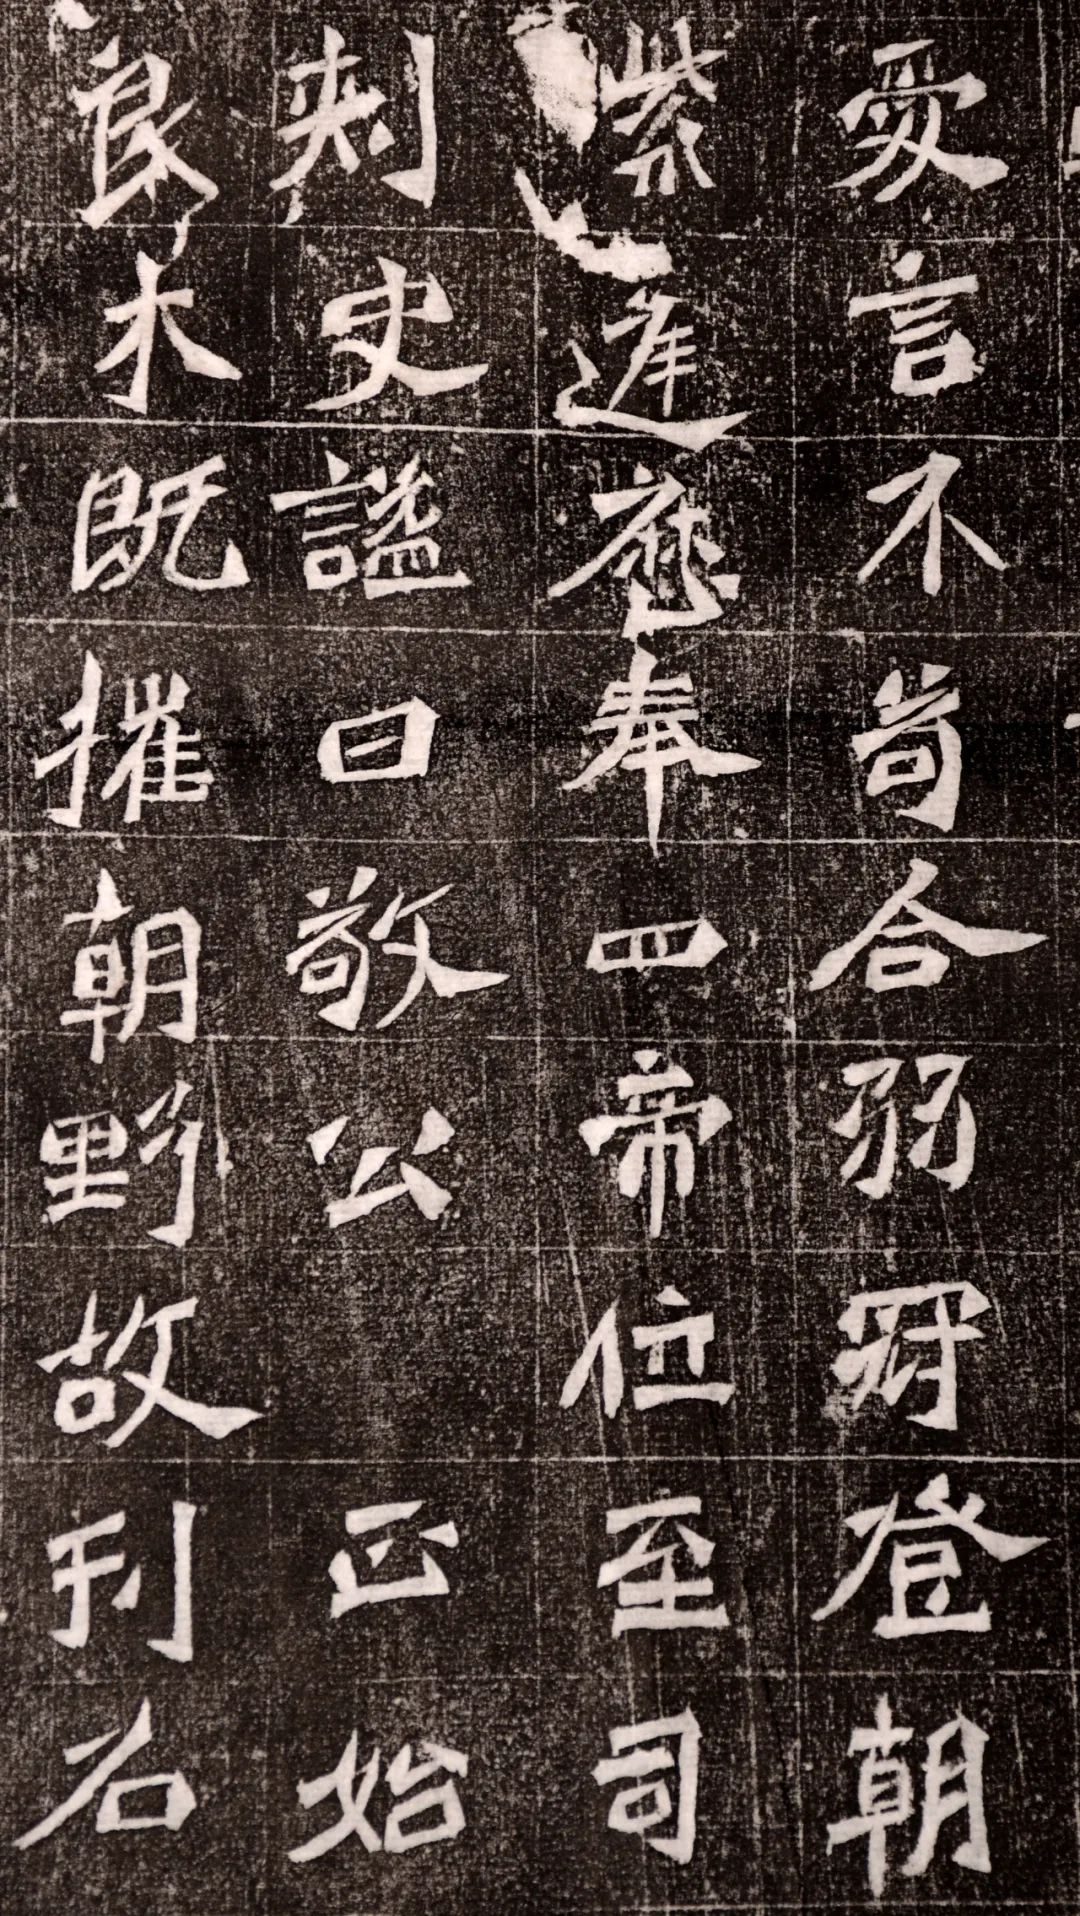 爰言不苟合弱冠登朝
紫遅歷奉四帝位至司
刺史謚曰敬公 正始
良木既摧朝野故刊石